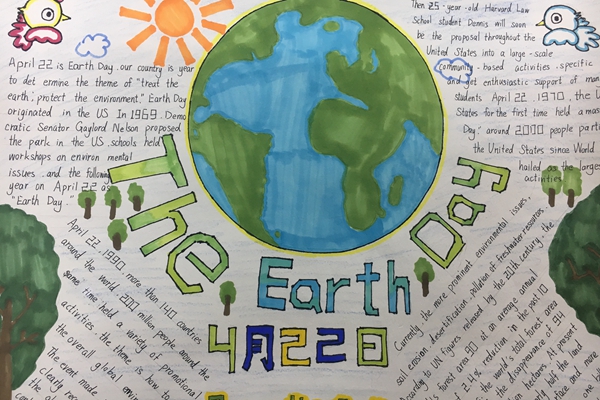 April 22 is Earth Day .our country is year
to det ermine the theme of "treat the
earth, protect the environment." Earth Day
originated in the US In 1969. Demo
cratic Senator Gaylord Nelson proposed
the park in the US .schools held
workshops on environ mental
issues .and the following
year on April 22 as
"Earth Day."
Then 25 -year -old Harvard Law
School student Dennis will soon
be the proposal throughout the
United States into a large -scale
community -based activities .specific
and get enthusiastic support of man
students April 22 .1970 .the U
States for the first time held a mass
Day; around 2000 people parti
the United States since World
hailed as the larges
activities
The Earth Day
4月22日
April 22 1990 more than 140 countries
around the world. 200 million people around the
same time held a variety of promotional
activities .the theme is how to
the overall global envir
The event made
clearly
Currently the more prominent environmental issues.
soil erosion .desertification .villation of freshwater resources
According to UN figures released by the 20th century. the
world's forest area 90 at an average annual
of 2.4% reduction in the past 10
the world's total forest area
the disappearance of 94
million hectares. At present
half the land
surface and